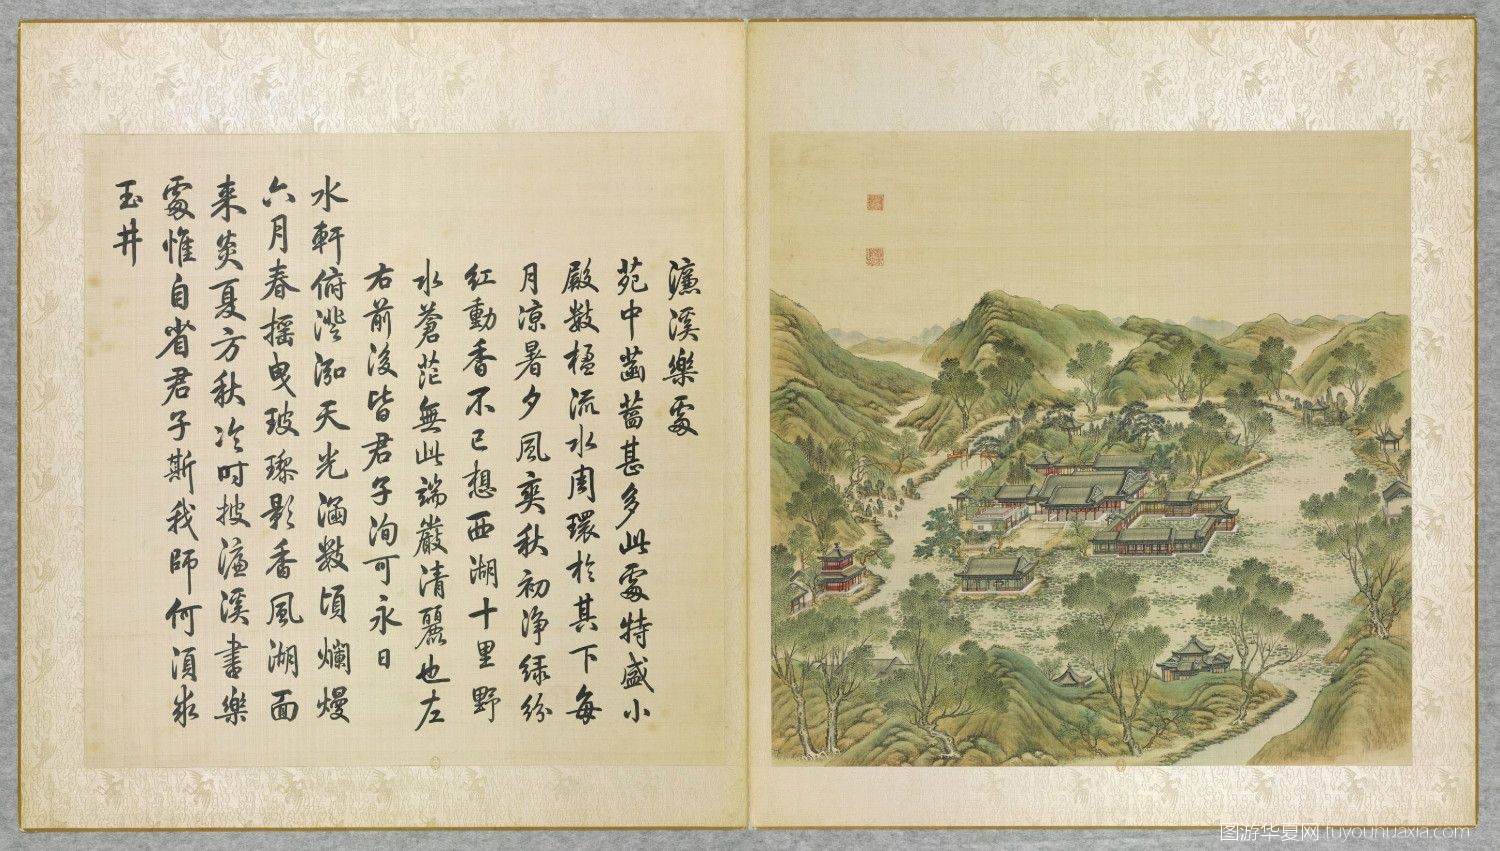 濂溪樂處
苑中菡萏甚多此處特盛小
殿數楹流水周環於其下每
月涼暑夕風爽秋初淨綠紛
紅動香不已想西湖十里野
水蒼茫無此端嚴清麗也左
右前後皆君子洵可永日
水軒俯澄泓天光涵數頃爛熳
六月春搖曳玻瓈影香風湖面
来炎夏方秋冷時披濂溪書樂
處惟自省君子斯我師何須求
玉井
图游华夏网 tuyouhuaxia.com